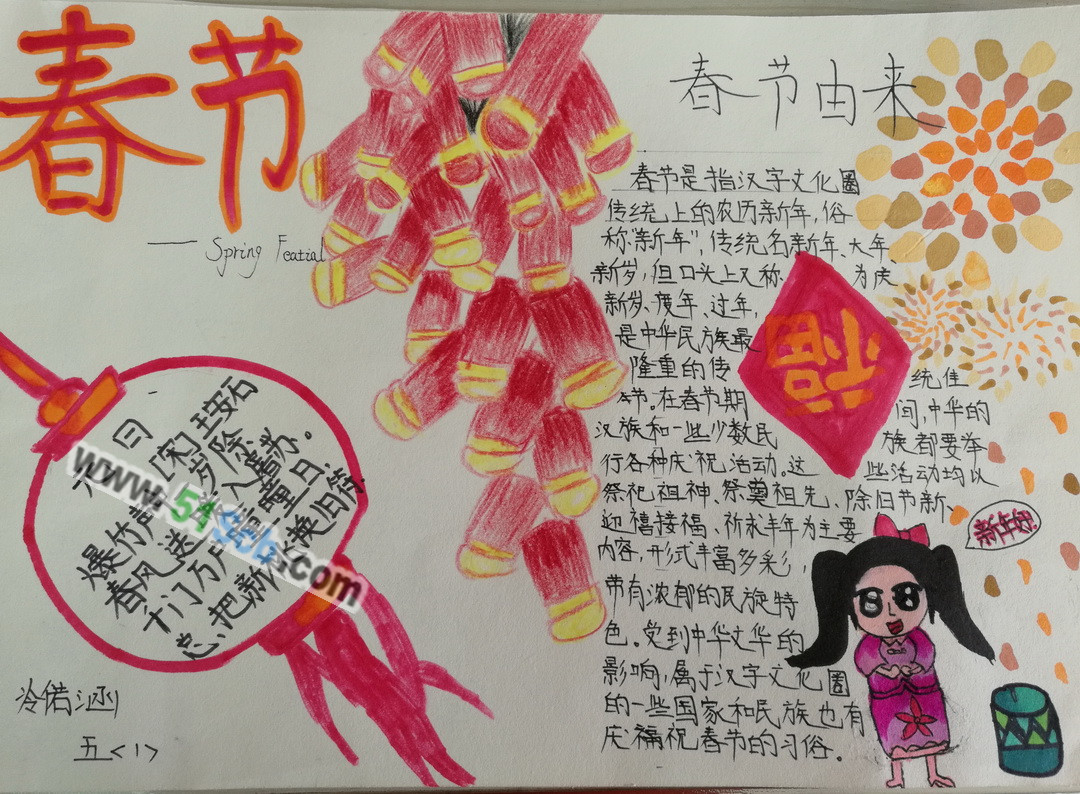 春节
Spring Featial
春节由来
春节是指汉字文化圈
传统上的农历新年,俗
称"新年",传统名新年、大年、
新岁,但口头上又称 为庆
新岁、度年、过年,
是中华民族最
隆重的传 统佳
节。在春节期 间,中华的
汉族和一些少数民 族都要举
行各种庆祝活动。这 些活动均以
祭祀祖神、祭奠祖先、除旧节新、
迎禧接福、祈求丰年为主要
内容,形式丰富多彩,
带有浓郁的民族特
色。受到中华文华的
影响,属于汉字文化圈
的一些国家和民族也有
庆福祝春节的习俗。
福
新年好!
日
[宋]王安石
爆竹声 岁除
春风送 入屠苏。
千门万户 曈日,
总把新 换旧符
www.54sbb.com
冷偌涵
五<1>